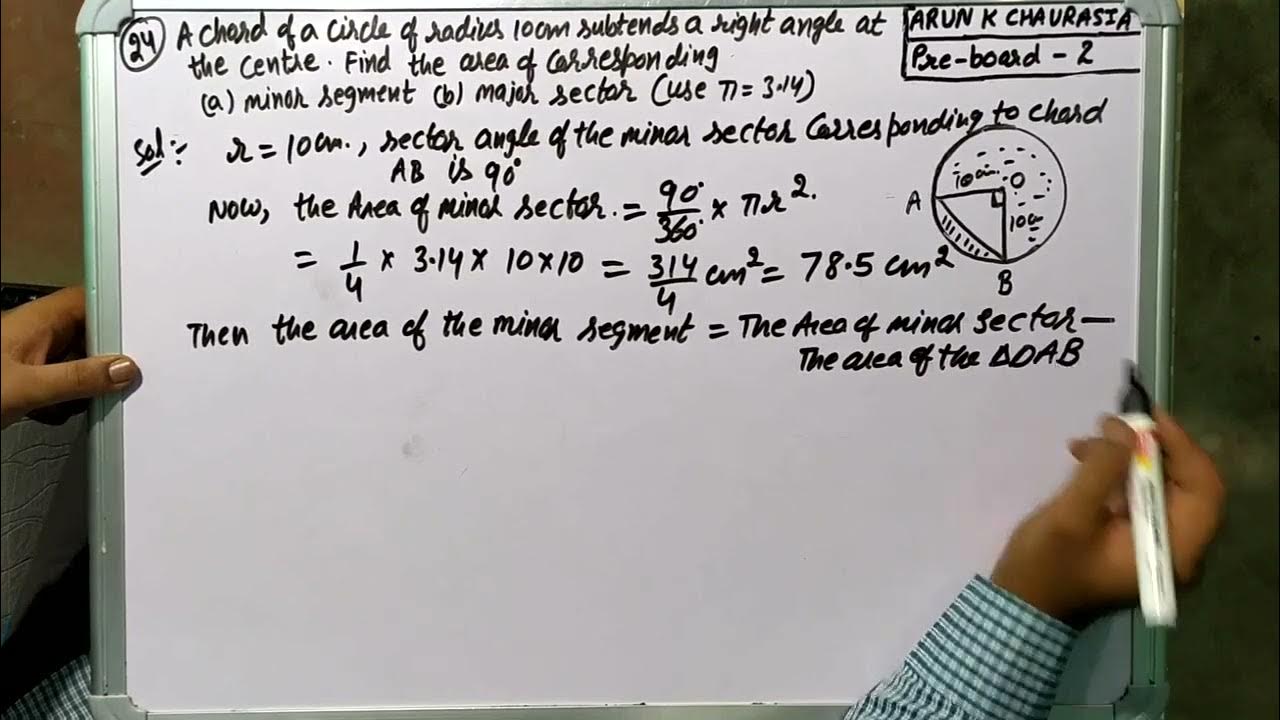 24 A chord of a circle of radius 10cm subtends a right angle at
the centre. Find the area of corresponding
(a) minor segment (b) major sector (use π = 3.14)
ARUN K CHAURASIA
Pre-board - 2
Sol:- r = 10cm., sector angle of the minor sector corresponding to chord
AB is 90°
Now, the Area of minor sector. = 90°/360° × πr².
= 1/4 × 3.14 × 10 × 10 = 314/4 cm² = 78.5 cm²
A
10cm
O
10c
B
Then the area of the minor segment = The Area of minor sector —
The area of the ΔOAB